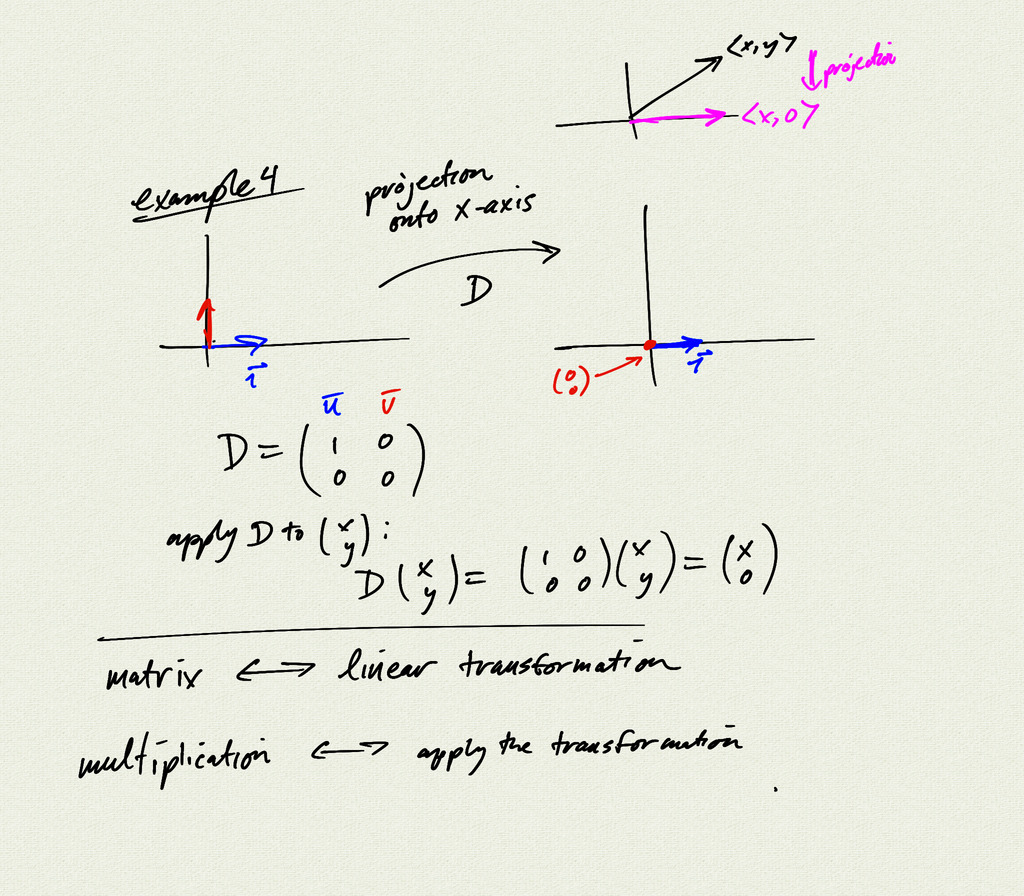 <x,y>
projection
<x,0>
example 4
projection
onto x-axis
D
i⃗
(0 0)
i⃗
ū v̄
D = (1 0
0 0)
apply D to (x y):
D (x y) = (1 0 0 0)(x y) = (x 0)
matrix ⟷ linear transformation
multiplication ⟷ apply the transformation